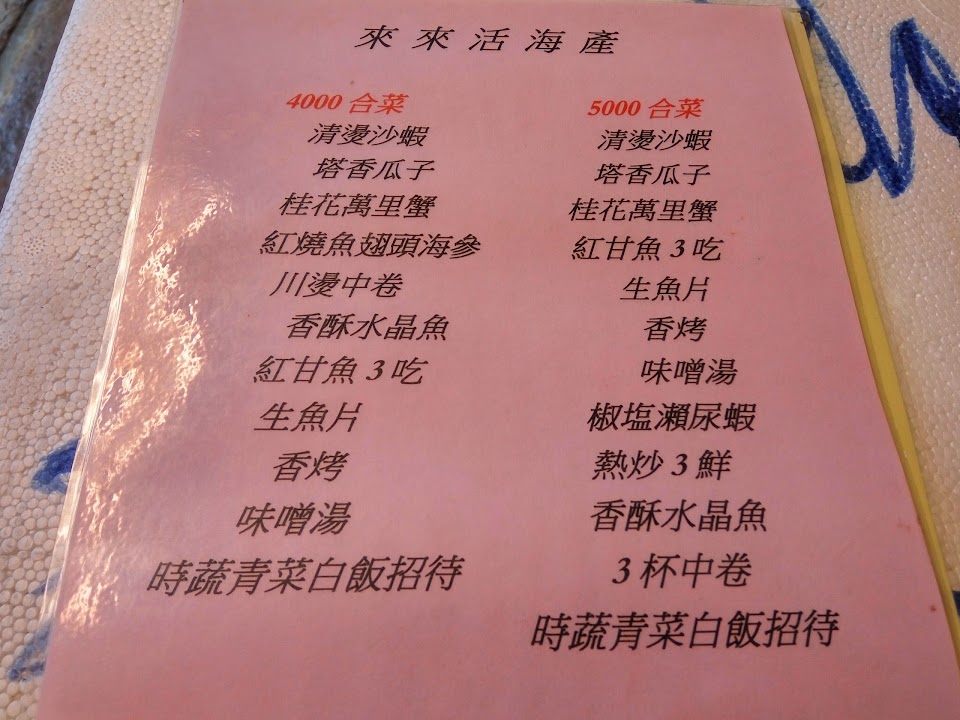 來來活海產
4000 合菜
清燙沙蝦
塔香瓜子
桂花萬里蟹
紅燒魚翅頭海參
川燙中卷
香酥水晶魚
紅甘魚 3 吃
生魚片
香烤
味噌湯
時蔬青菜白飯招待
5000 合菜
清燙沙蝦
塔香瓜子
桂花萬里蟹
紅甘魚 3 吃
生魚片
香烤
味噌湯
椒塩瀨尿蝦
熱炒 3 鮮
香酥水晶魚
3 杯中卷
時蔬青菜白飯招待